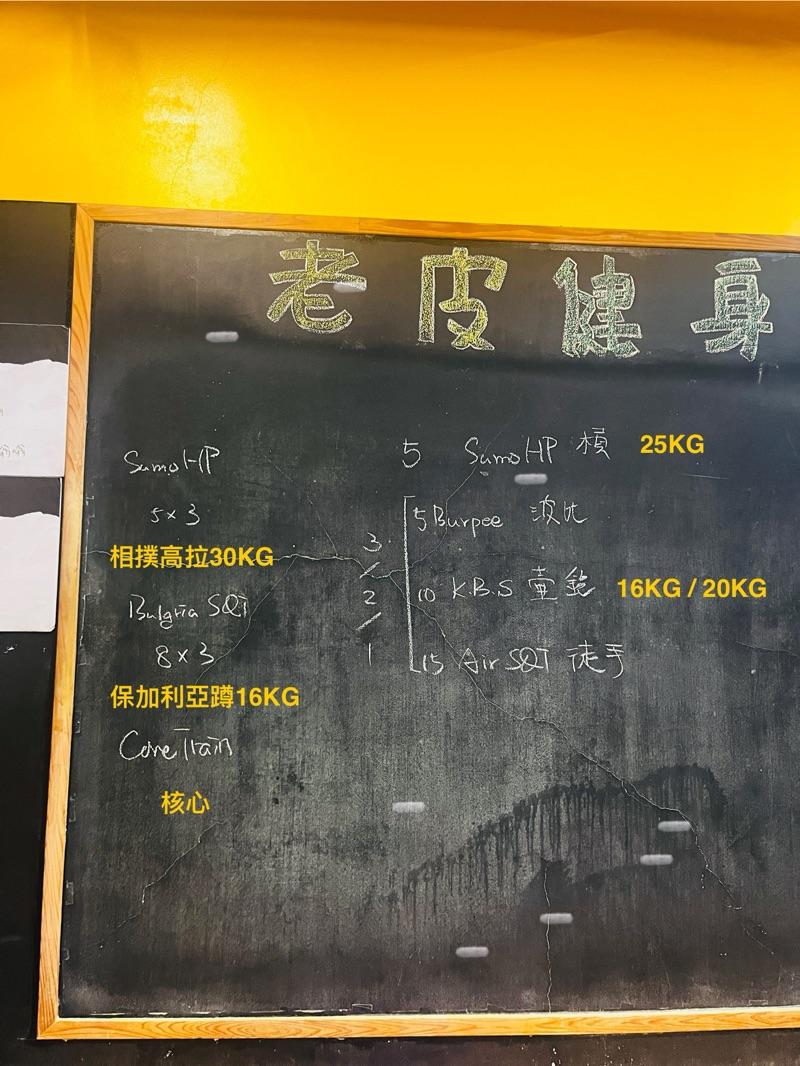 老皮健身
SumoHP
5×3
相撲高拉30KG
Bulgria SQT
8×3
保加利亞蹲16KG
Core Train
核心
5 SumoHP 槓 25KG
3/2/1
5 Burpee 波比
10 K.B.S 壺鈴 16KG / 20KG
15 Air SQT 徒手